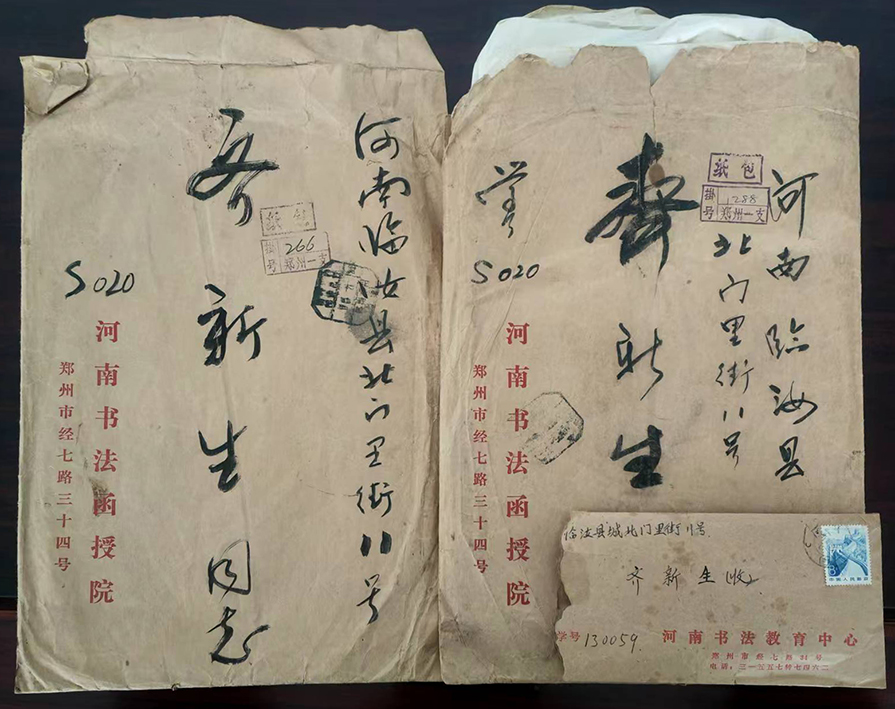 河南临汝县北门里街11号
齐新生同志
纸包
掛号
266
郑州一支
S020
河南书法函授院
郑州市经七路三十四号
河南临汝县
北门里街11号
齐新生
纸包
掛号
1288
郑州一支
S020
河南书法函授院
郑州市经七路三十四号
临汝县城北门里街11号
齐新生收
学号 130059.
河南书法教育中心
郑州市经七路34号
中国人民邮政